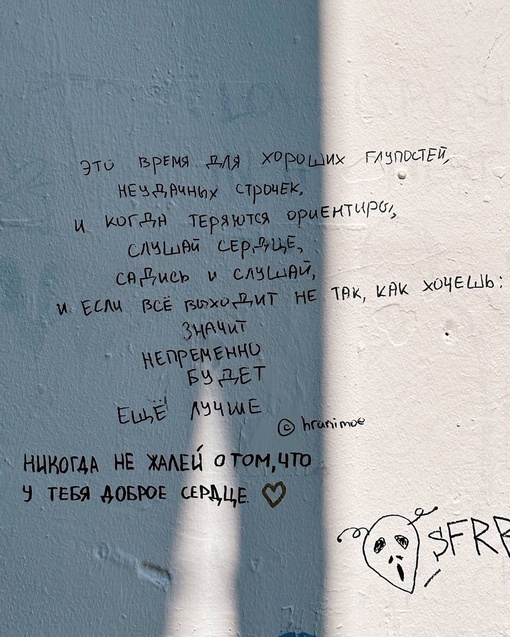 ЭТО ВРЕМЯ ДЛЯ ХОРОШИХ ГЛУПОСТЕЙ,
НЕУДАЧНЫХ СТРОЧЕК,
И КОГДА ТЕРЯЮТСЯ ОРИЕНТИРЫ,
СЛУШАЙ СЕРДЦЕ,
САДИСЬ И СЛУШАЙ,
И ЕСЛИ ВСЁ ВЫХОДИТ НЕ ТАК, КАК ХОЧЕШЬ:
ЗНАЧИТ
НЕПРЕМЕННО
БУДЕТ
ЕЩЁ ЛУЧШЕ
© hranimoe
НИКОГДА НЕ ЖАЛЕЙ О ТОМ, ЧТО
У ТЕБЯ ДОБРОЕ СЕРДЦЕ ♡